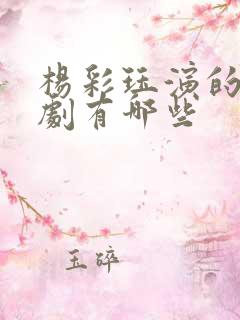 楊彩珏演的
劇有哪些
玉碎